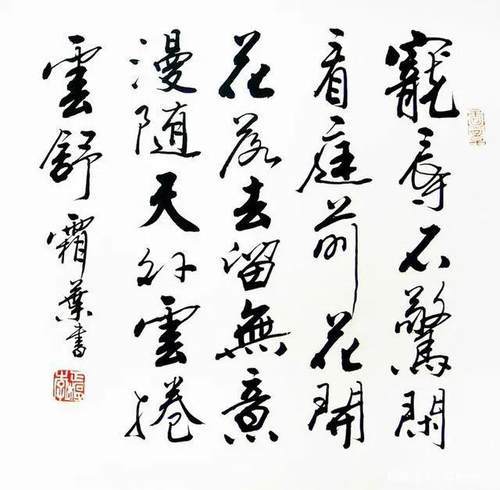 寵辱不驚閑
看庭前花開
花落去留無意
漫随天外雲捲
雲舒 霜葉書